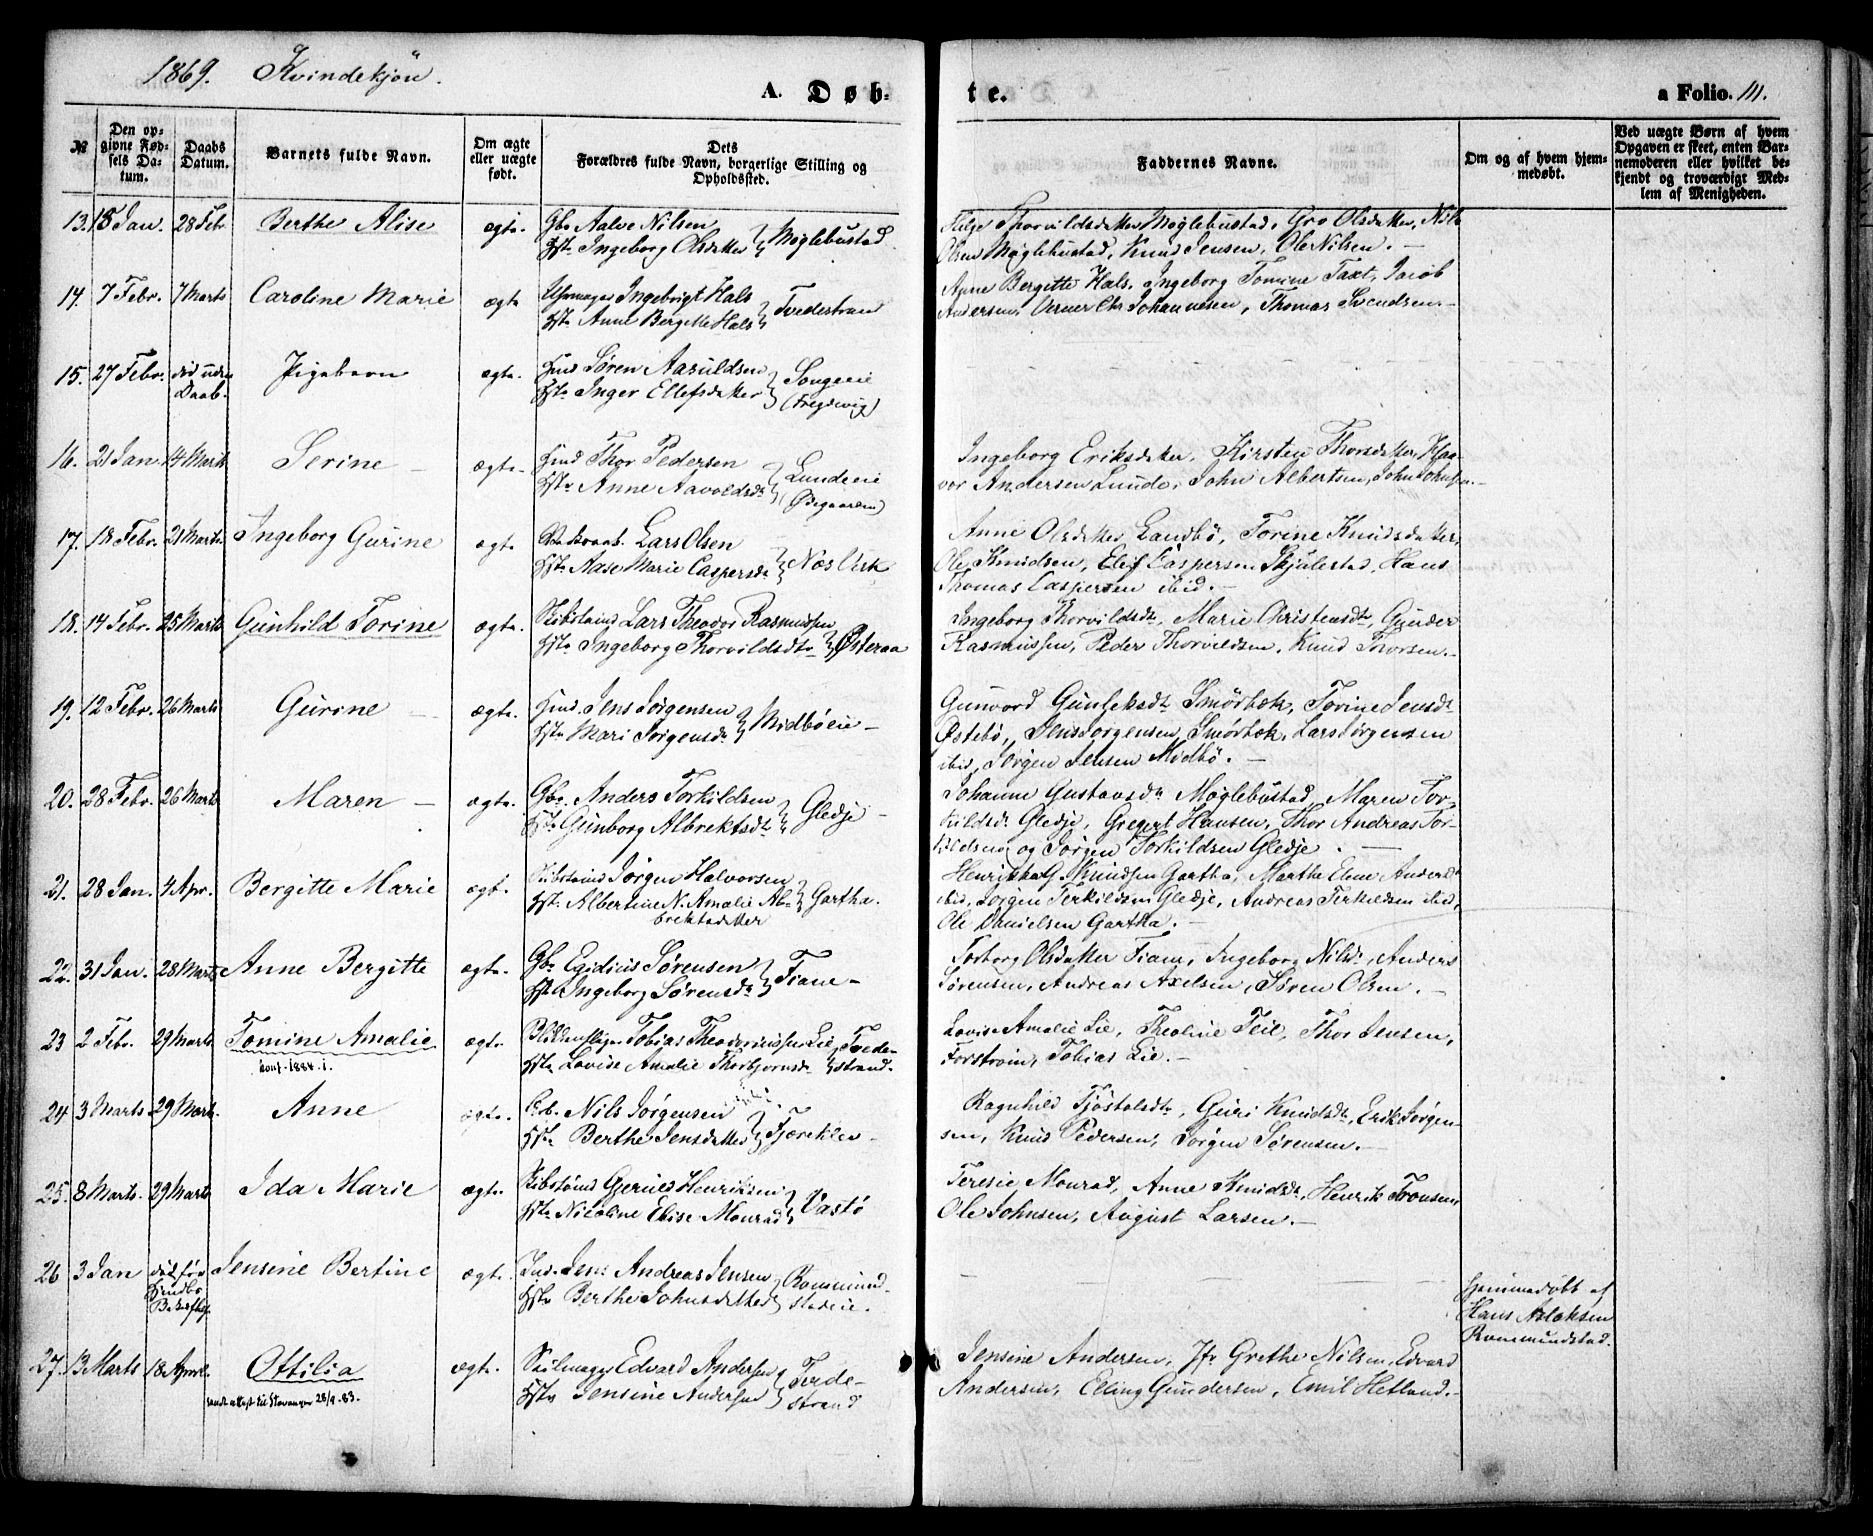 1869. Kvindekjön.
A. Døb-
te.
a Folio. 111.
№
Den op-
givne Fød-
sels Da-
tum.
Daabs
Datum.
Barnets fulde Navn.
Om ægte
eller uægte
født.
Dets
Forældres fulde Navn, borgerlige Stilling og
Opholdssted.
Faddernes Navne.
Om og af hvem hjem-
medøbt.
Ved uægte Børn af hvem
Opgaven er skeet, enten Bar-
nemoderen eller hvilket be-
kjendt og troværdigt Med-
lem af Menigheden.
13. 15 Jan. 28 Febr. Berthe Alise ægt. Gbr. Aalve Nilsen
Hst. Ingeborg Olsdatter } Møglebustad
Thorvildsdatter Møglebustad, Gro Olsdatter, Nils
Olsen Møglebustad, Knud Jensen, Ole Nilsen. —
14. 7 Febr. 7 Marts Caroline Marie ægt. Uhrmager Ingebrigt Hals
Hst. Anne Bergitte Hals } Tvedestrand
Anne Bergitte Hals, Ingeborg Tomine Taxt, Jacob
Andersen, Verner Chr Johannesen, Thomas Svendsen. —
15. 27 Febr. död uden
Daab. Pigebarn ægt. Hmd Søren Aasuldsen
Hst. Inger Ellefsdatter } Songeeie
16. 21 Jan. 14 Marts Serine — ægt. Hmd Thor Pedersen
Hst. Anne Aavoldsdt } Lundeeie
(Øigaarden)
Ingeborg Eriksdatter, Kirsten Thorsdatter, Haa-
vor Andersen Lunde, John Albertsen, John Johnsen. —
17. 18 Febr. 21 Marts Ingeborg Gurine ægt. Lars Olsen
Hst. Aase Marie Caspersdt } Næs Verk
Anne Olsdatter Landbö, Torine Knudsdatter,
Ole Knudsen, Elef Caspersen Skjulestad, Hans
Thomas Caspersen ibid.
18. 14 Febr. 25 Marts Gunhild Torine ægt. Skibstømd Lars Theodor Rasmussen
Hst. Ingeborg Thorvildsdt } Østeraa
Ingeborg Thorvildsdt, Marie Christensdt, Gunder
Rasmussen, Peder Thorvildsen, Knud Thorsen. —
19. 12 Febr. 26 Marts Gurine — ægt. Hmd. Jens Jørgensen
Hst. Mari Jørgensdt } Midböeie —
Gunvord Gunleksdt Smörbæk, Torine Jensdt
Østebö, Jens Jørgensen Smörbæk, Lars Jørgensen
ibid, Jørgen Jensen Midbö. —
20. 28 Febr. 26 Marts Maren — ægt. Gbr. Anders Torkildsen
Hst. Gunborg Albrektsdt } Gledje —
Johanne Gustavsdt Møglebustad, Maren Tor-
kildsdt Gledje, Gregert Hansen, Thor Andreas Tor-
kildsen og Jørgen Torkildsen Gledje. —
21. 28 Jan. 4 Apr. Bergitte Marie ægt. Skibstømd Jørgen Halvorsen
Hst. Albertine N. Amalie Al-
brektsdatter } Gartha.
G. Knudsen Gartha, Marthe Elene Andersdt
ibid, Jørgen Terkildsen Gledje, Andreas Terkildsen ibid,
Ole Danielsen Gartha.
22. 31 Jan. 28 Marts Anne Bergitte ægt. Gbr Egidius Sørensen
Hst. Ingeborg Sørensdt } Fiane —
Torborg Olsdatter Fiane, Ingeborg Nilsdt, Anders
Sørensen, Andreas Axelsen, Søren Olsen. —
23 2 Febr. 29 Marts Tomine Amalie
konf. 1884. 1. ægt. Tobias Theodoriussen Lie
Hst. Lovise Amalie Thorbjørnsdt } Tvede-
strand.
Lovise Amalie Lie, Theoline Teie, Thor Jensen,
Forstrøm, Tobias Lie. —
24 3 Marts 29 Marts Anne ægt. Nils Jørgensen
Hst. Berthe Jensdatter } Fjæreklev —
Ragnhild Tjöstelsdt, Guri Knudsdt, Erik Jørgen-
sen, Knud Pedersen, Jørgen Sørensen. —
25. 8 Marts. 29 Marts Ida Marie ægt. Skibstømd Gerues Henriksen
Hst. Nicoline Elise Monrad } Vastö
Teresie Monrad, Anne Knudsdt, Henrik Tronsen,
Ole Johnsen, August Larsen. —
26 3 Jan död før
Jensine Bertine ægt. Ind. Jens Andreas Jensen
Hst. Berthe Johnsdatter } Rommund-
stadeie.
Hjemmedöbt af
Hans Aslaksen
Rommundstad.
27. 13 Marts 18 April. Ottilia
sendt attest til Stavanger 28/9.83. ægt. Edvard Andersen
Hst. Jensine Andersen } Tvede-
strand
Jensine Andersen, Jfr Grethe Nilsen, Edvard
Andersen, Elling Gundersen, Emil Hetland. —